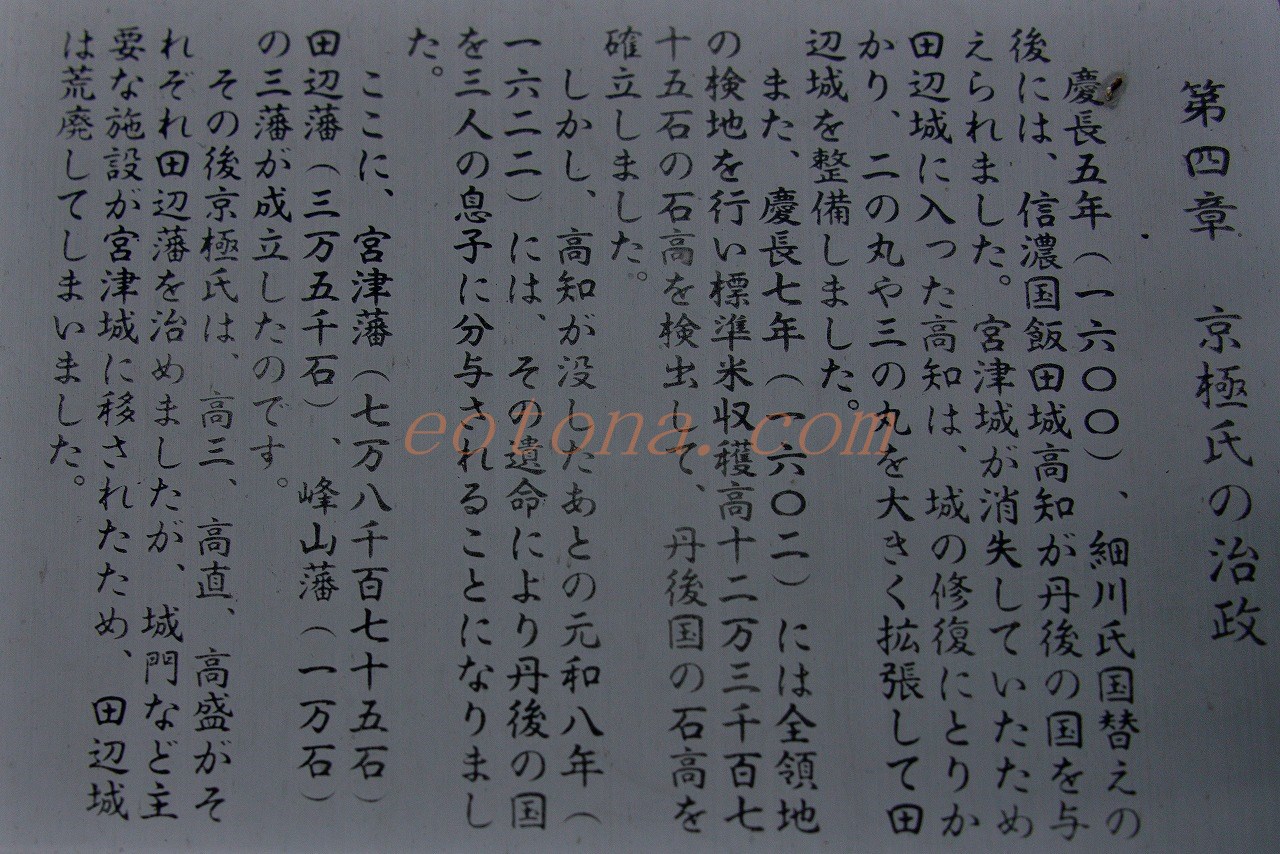 第四章　京極氏の治政
慶長五年（一六〇〇）、細川氏国替えの
後には、信濃国飯田城高知が丹後の国を与
えられました。宮津城が消失していたため
田辺城に入った高知は、城の修復にとりか
かり、二の丸や三の丸を大きく拡張して田
辺城を整備しました。
また、慶長七年（一六〇二）には全領地
の検地を行い標準米収穫高十二万三千百七
十五石の石高を検出して、丹後国の石高を
確立しました。
しかし、高知が没したあとの元和八年（
一六二二）には、その遺命により丹後の国
を三人の息子に分与されることになりまし
た。
ここに、宮津藩（七万八千百七十五石）
田辺藩（三万五千石）、峰山藩（一万石）
の三藩が成立したのです。
その後京極氏は、高三、高直、高盛がそ
れぞれ田辺藩を治めましたが、城門など主
要な施設が宮津城に移されたため、田辺城
は荒廃してしまいました。
eotona.com